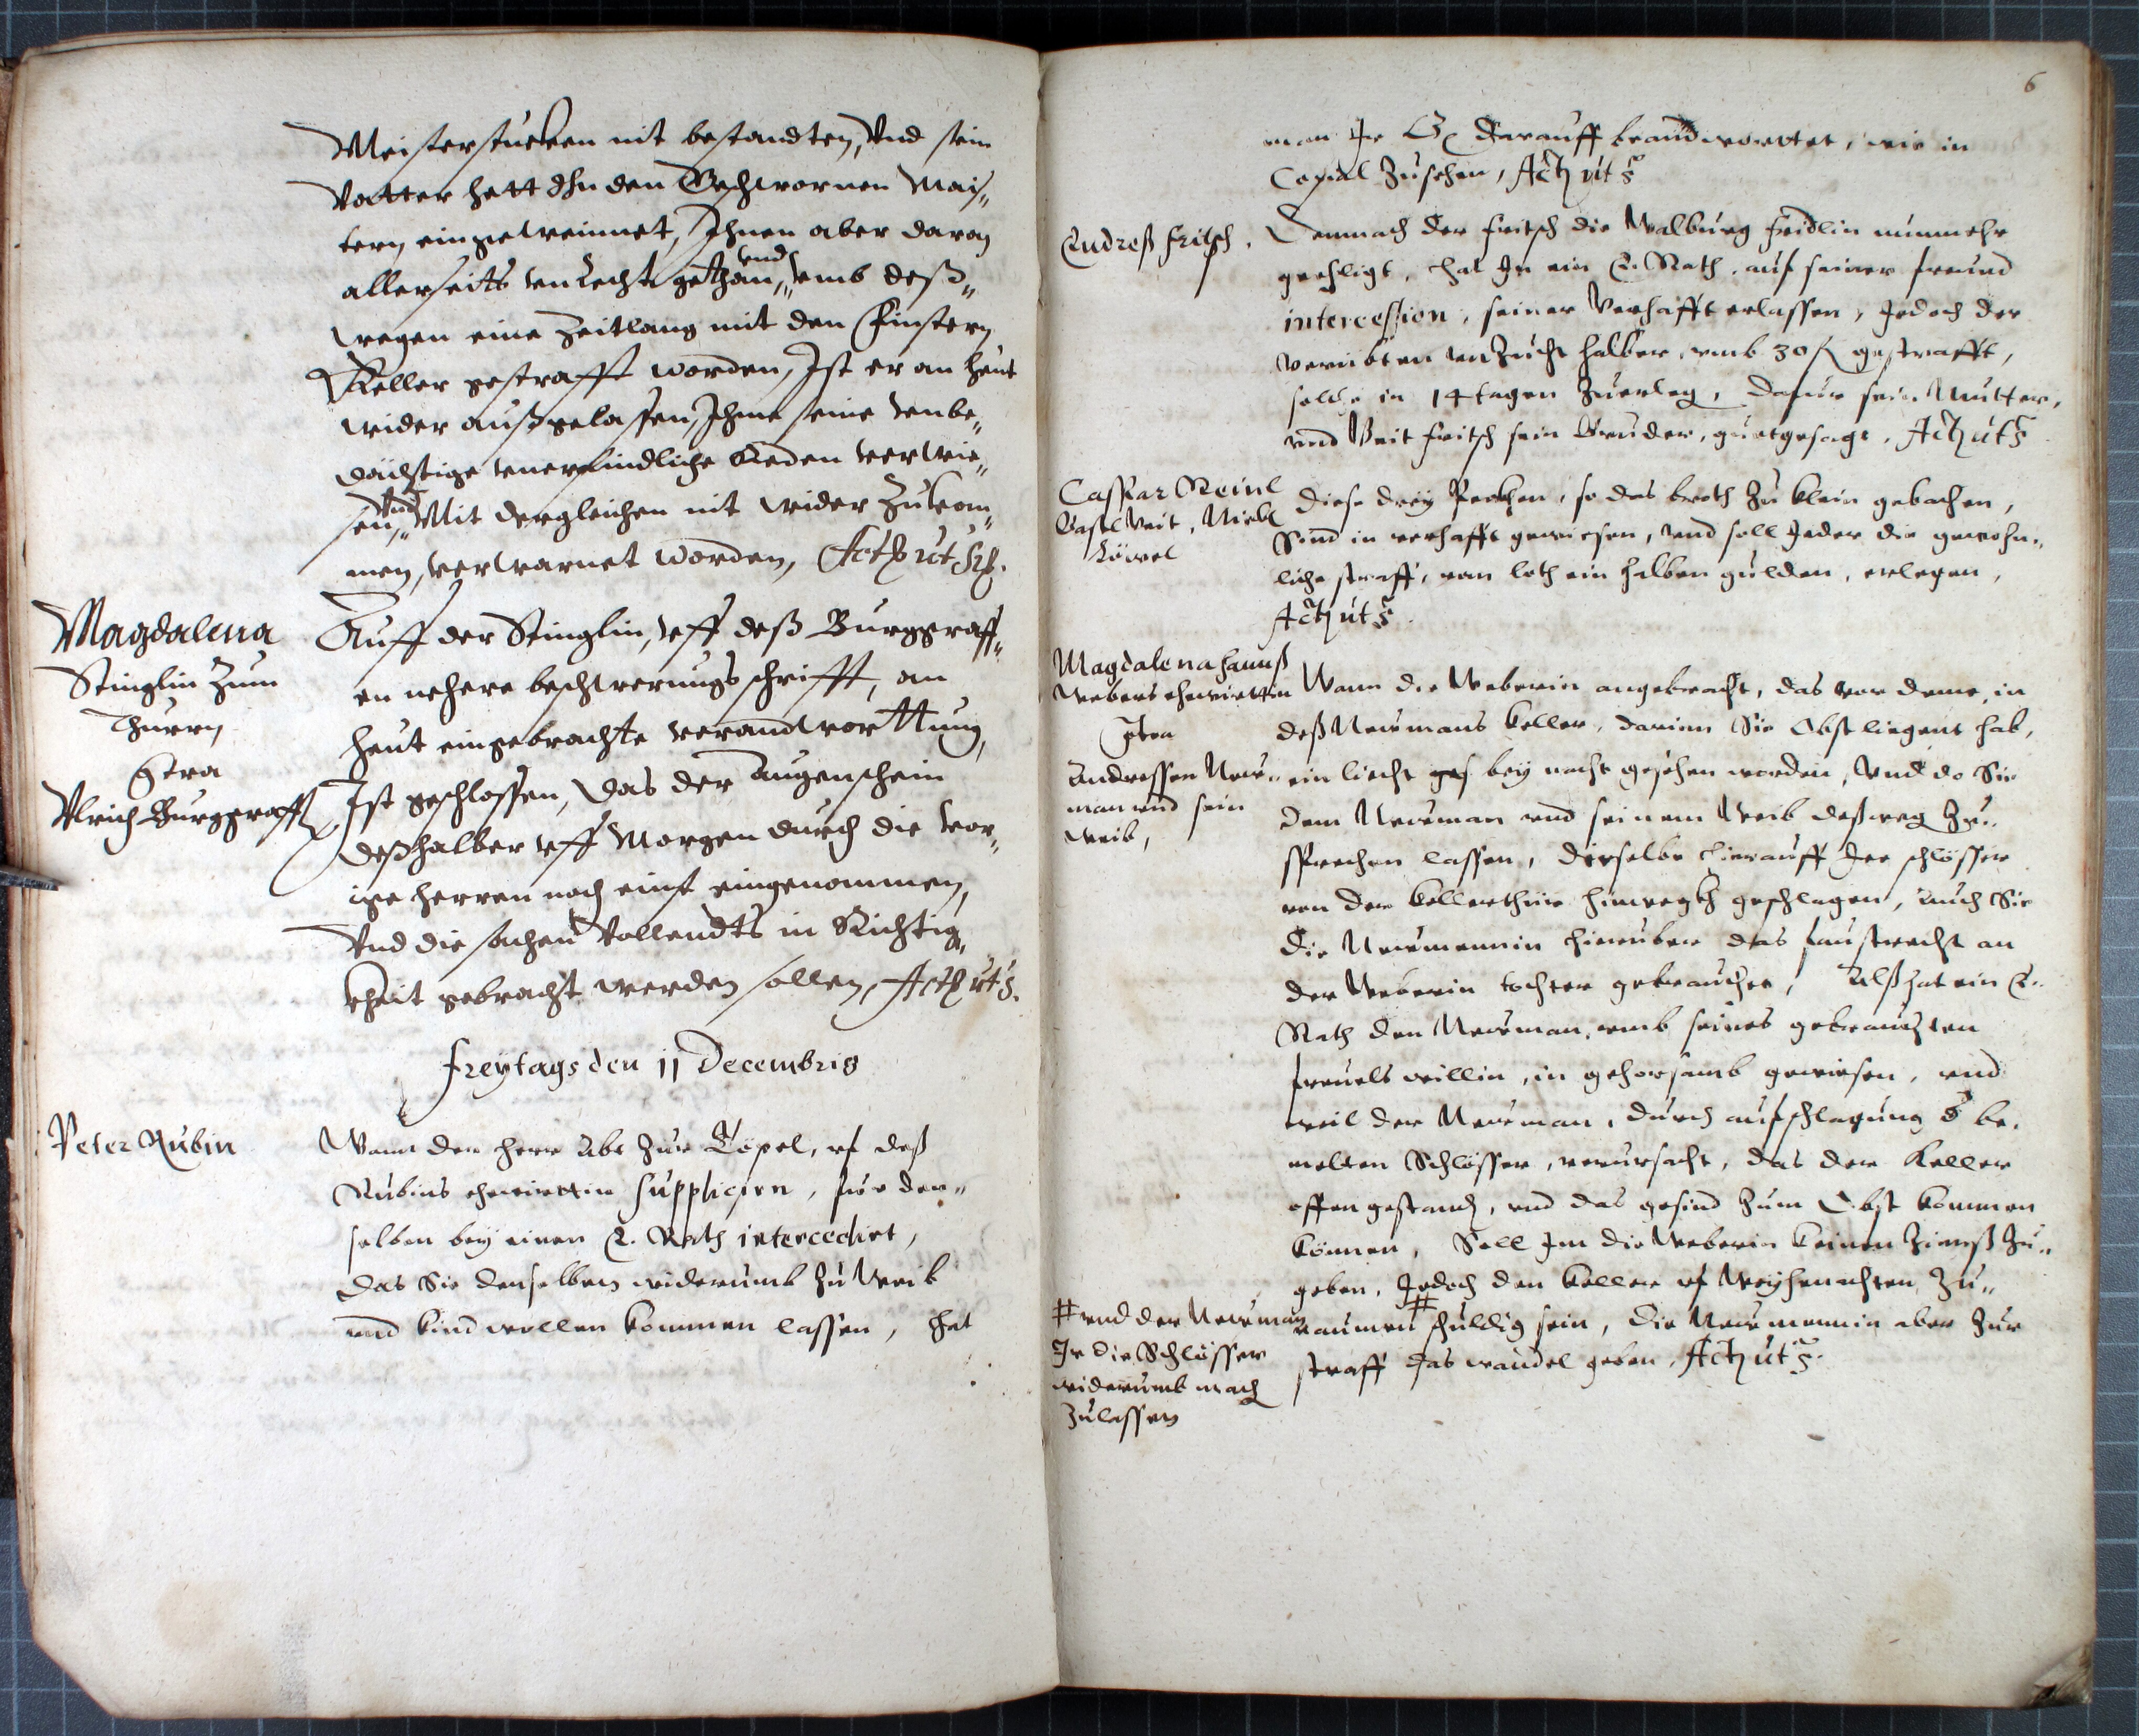 Meisterstucken nit bestandten, Vnd sein
Vatter hett Ihn den Geschwornen Mais„
tern eingeweinnet, Ihnen aber daran
allerseits vnrecht gethan„ vnd vmb deß„
wegen eine Zeitlang mit den Finstern
Keller gestrafft worden, Ist er an heut
wider außgelassen, Ihme seine vnbe„
dächtige vnerfindliche Reden verwie„
sen„ Vnd Mit dergleichen nit wider Zukom„
men, verwarnet worden, Acth ut sp.
Magdalena
Stinglin Zum
Thurn
Ctra
Vlrich Burggraff
Auff der Stinglin, vff deß Burggraff„
en nehere beschwerungs schrifft, an
heut eingebrachte verandtworttung,
Ist geschlossen, Das der Augenschein
deßhalber vff Morgen durch die vor„
ige herren noch einst eingenommen,
Vnd die sachen Vollendts in Richtig„
kheit gebracht werden sollen, Acth ut s.
Freÿtags den 11 Decembris
Peter Rubin
Wann der herr Abt Zur Töpel, vf deß
Rubins ehewirttin supplicirn, fur den„
selben beÿ einen E. Rath intercedirt,
das Sie denselben widerumb Zu Weib
vnd kind wollen kommen lassen, hat
6
man Ir G darauff beandtworttet, wie in
Copial Zusehen, Acth ut s
Endreß Fritsch.
Demnach der Fritsch die Walburg Fridlin nunmehr
geehligt, hat In ein E. Rath, auf seiner freund
intercession, seiner Verhafft erlassen, Jedoch der
verubten vnzucht halber, vmb 30 fl gestrafft,
solche in 14 tagen Zuerleg, dafur sein Mutter,
vnd Veit Fritsch sein Bruder, guetgesagt. Acth ut s
Casspar Reinl
Bastl Veit, Nickl
Löwel
Diese dreÿ Becken, so das broth Zu klein gebachen,
Sind in verhafft gewiesen, vnd soll Jeder die gewohn„
liche straff, vom loth ein halben gulden, erlegen,
Acth ut s.
Magdalena Hannß
Webers ehewirttin
Ctra
Andressen New„
man vnd sein
weib,
Wann die Weberin angebracht, das vor deme, in
deß Newmans keller, darinn Sie Obst liegent hab,
ein liecht beÿ nacht gesehen worden, Vnd do Sie
dem Newman vnd seinem Weib deßweg Zu„
sprechen lassen, dieselbe hierauff Ire schlösser
von der kellerthür hinwegkh geschlagen, auch Sie
die Newmannin hieruber das faustrecht an
der Weberin tochter gebrauchet, Alß hat ein E.
Rath den Newman, vmb seines gebrauchten
freuels willin, in gehorsamb gewiesen, vnd
weil der Newman, durch aufschlagung d be„
melten Schlösser, verursacht, das der Keller
offen gestand, vnd das gesind Zum Obst kommen
können, Soll Im die Weberin keinen Zinnß Zu„
geben, Jedoch den keller vf Weÿhenachten Zu„
raumen # schuldig sein, die Newmannin aber Zur
straff das wandel geben. Acth ut s.
# vnd der Newman
Ir die Schlösser
widerumb mach
Zulassen